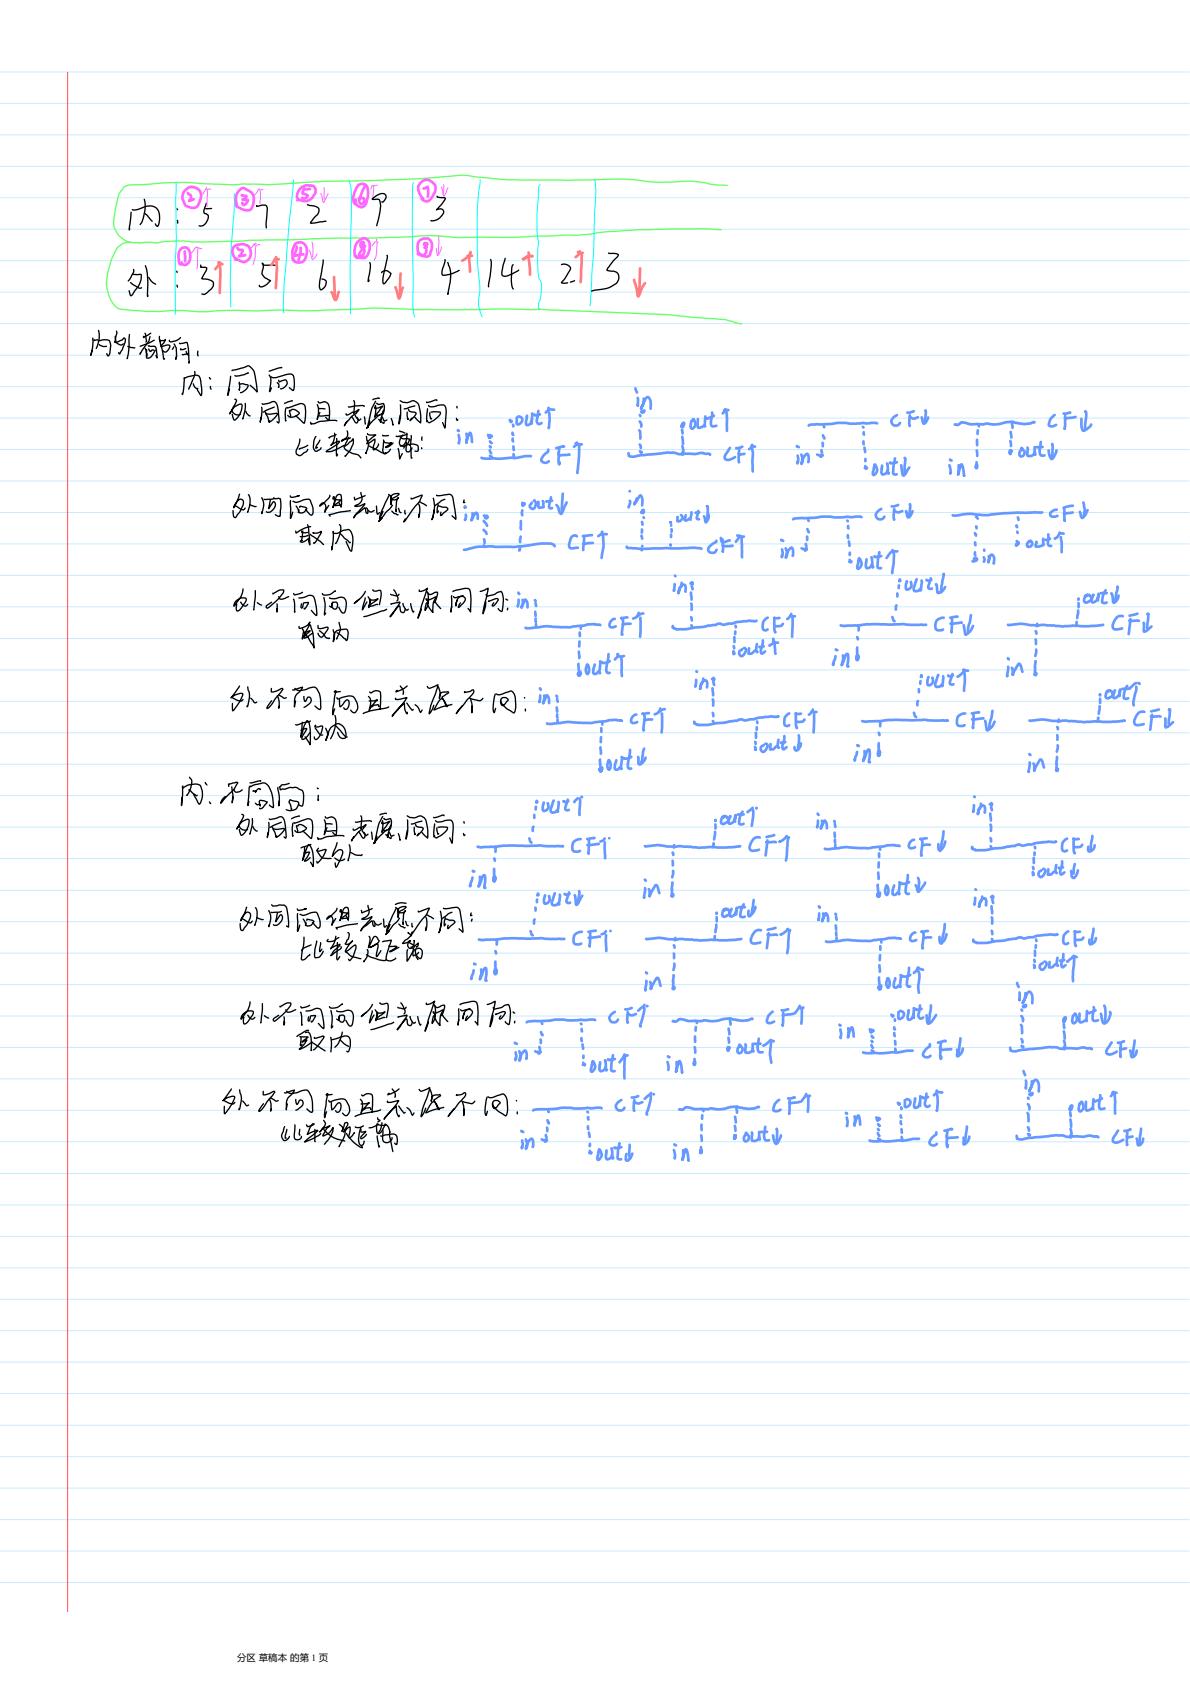 内: ②↑5 ③↑7 ⑤↓2 ⑥↑9 ⑦↓3
外: ①↑3↑ ②↑5↑ ④↓6↓ ⑧↑16↓ ⑨↓4↑ 14↑ 2↑ 3↓
内外都有:
内: 同向
外同向且志愿同向: in out↑ CF↑ in out↑ CF↑ in CF↓ out↓ in CF↓ out↓
比较距离:
外同向但志愿不同: in out↓ CF↑ in out↓ CF↑ in CF↓ out↑ in CF↓ out↑
取内
外不同向但志愿同向: in CF↑ out↑ in CF↑ out↑ in out↓ CF↓ in out↓ CF↓
取内
外不同向且志愿不同: in CF↑ out↓ in CF↑ out↓ in out↑ CF↓ in out↑ CF↓
取内
内: 不同向:
外同向且志愿同向: in out↑ CF↑ in out↑ CF↑ in CF↓ out↓ in CF↓ out↓
取外
外同向但志愿不同: in out↓ CF↑ in out↓ CF↑ in CF↓ out↑ in CF↓ out↑
比较距离
外不同向但志愿同向: in CF↑ out↑ in CF↑ out↑ in out↓ CF↓ in out↓ CF↓
取内
外不同向且志愿不同: in CF↑ out↓ in CF↑ out↓ in out↑ CF↓ in out↑ CF↓
比较距离
分区 草稿本 的第 1 页